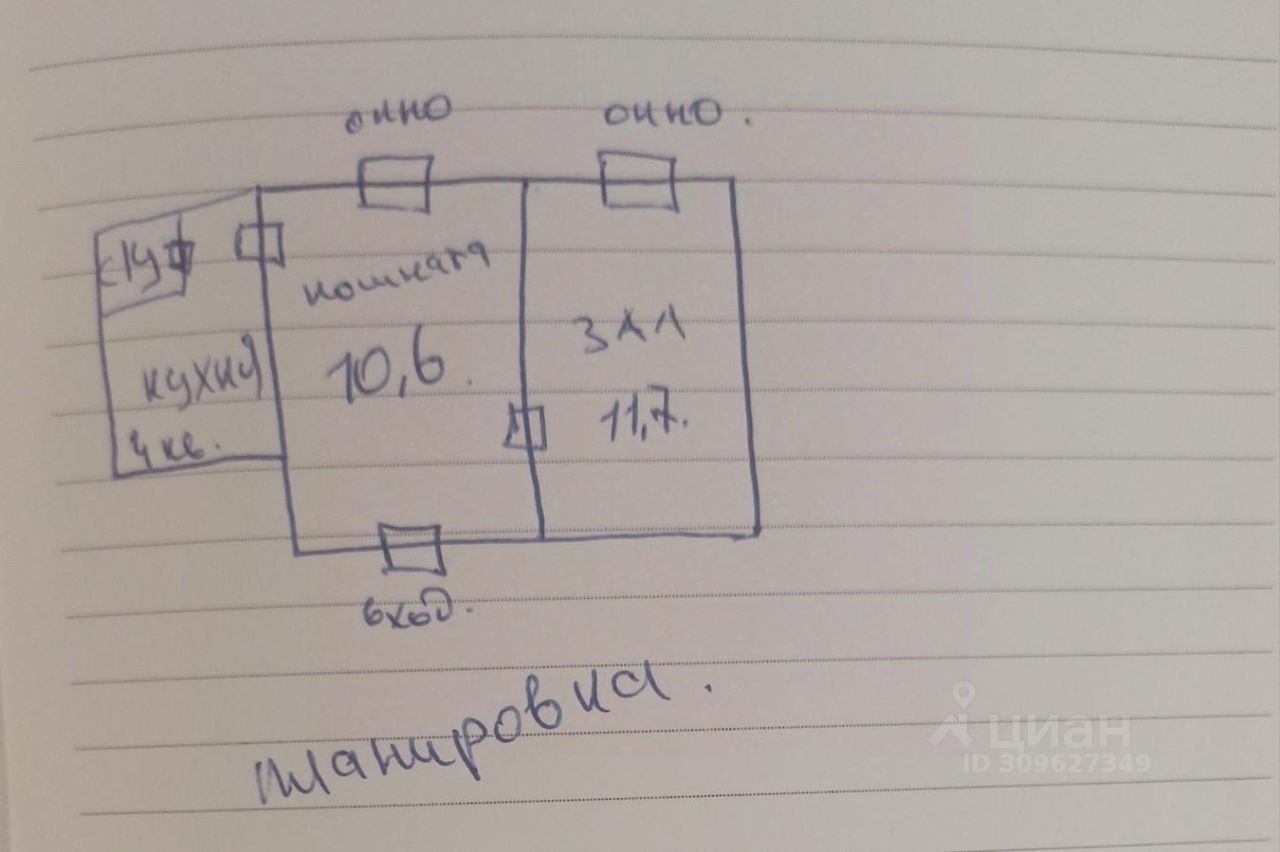 окно окно.
с/у
комната
10,6.
зал
11,7.
кухня
4 кв.
вход.
планировка.
циан
ID 309627349